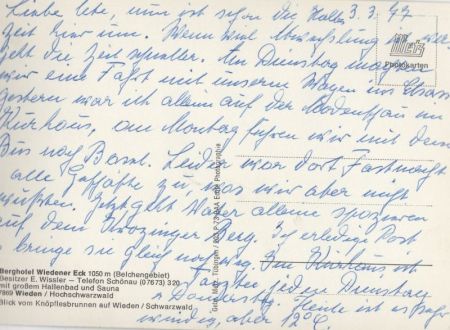 3.3.47
Liebe Ute, nun ist schon die halbe
Zeit hier um. Wenn viel Abwechslung ist ver-
geht die Zeit schneller. Am Dienstag machten
wir eine Fahrt mit unserm Wagen ins Elsass
gestern war ich allein auf der Modenschau im
Kurhaus, am Montag fuhren wir mit dem
Bus nach Basel. Leider war dort Fastnacht
alle Geschäfte zu, was wir aber nicht
wußten. Jetzt geht Walter alleine spazieren
auf dem Krozinger Berg. Ich erledige Post
bringe sie gleich noch weg. Im Kurhaus ist
Tanztee jeden Dienstag
u. Donnerstag. Heute ist es sehr
windig, aber 12°C.
Metz
Photokarten
Gebr. Metz Tübingen Echte Photographie
Berghotel Wiedener Eck 1050 m (Belchengebiet)
Besitzer E. Wissler – Telefon Schönau (07673) 320
mit großem Hallenbad und Sauna
7869 Wieden / Hochschwarzwald
Blick vom Knöpflesbrunnen auf Wieden / Schwarzwald